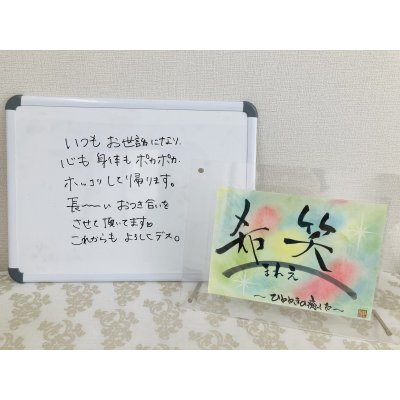 いつも お世話になり、
心も 身体も ポカポカ
ホッコリして帰ります。
長〜い おつき合いを
させて頂いてます。
これからも よろしくデス。
希笑
まねえ
〜ひとときの癒しを〜